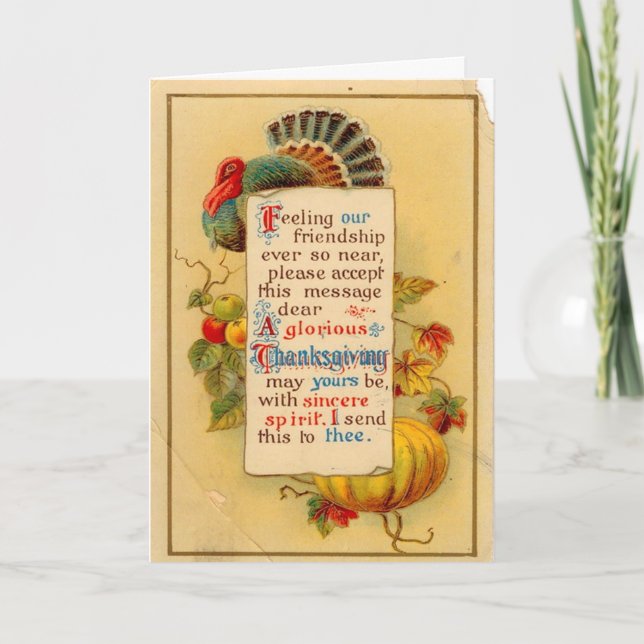 Feeling our
friendship
ever so near,
please accept
this message
dear
A glorious
Thanksgiving
may yours be,
with sincere
spirit. I send
this to thee.